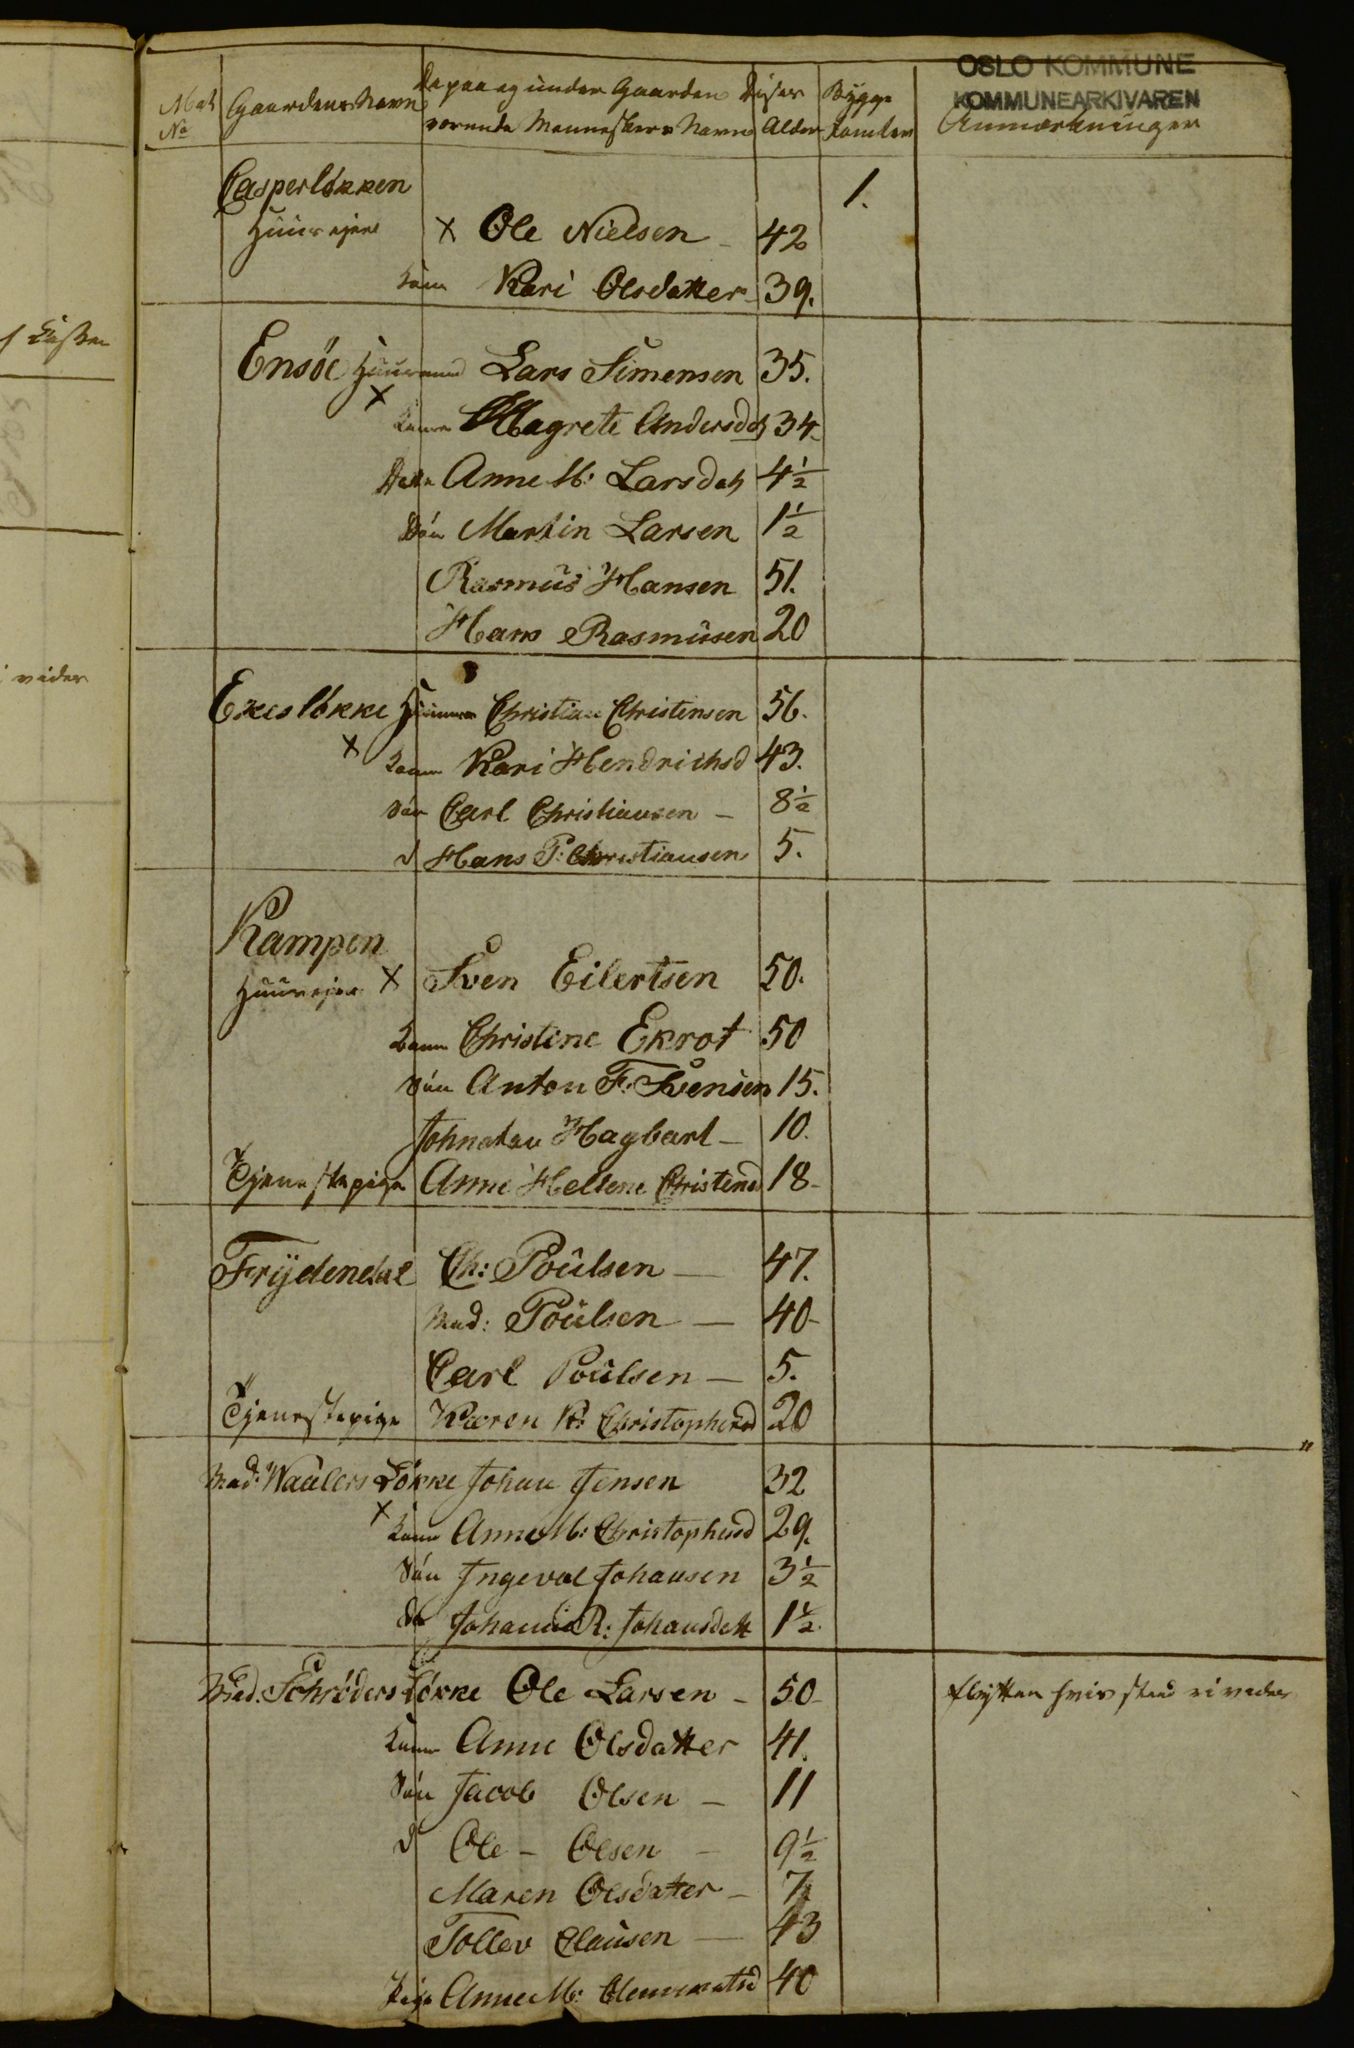 OSLO KOMMUNE
KOMMUNEARKIVAREN
Mat No Gaardens Navn De paa og under Gaarden værende Menneskers Navne Disses Alder Bygge Anmærkninger
Casperløkken 1.
Huuseier x Ole Nielsen - 42
Kone Kari Olsdatter - 39.
Ensøe Huusmand Lars Simensen 35.
x Kone Magrete Andersdat 34-
Anne M: Larsdat 4½
Søn Martin Larsen 1½
Rasmus Hansen 51.
Hans Rasmusen 20
Ekesløkke Christian Christensen 56.
x Kone Kari Hendrichsd 43.
Søn Carl Christiansen - 8½
d Hans P: Christiansen 5.
Kampen
Huuseier x Sven Eilertsen 50.
Kone Christine Ekrot 50
Søn Anton F. Svensen 15.
Johnatan Hagbart - 10.
Tjenestepige Anne Hellene Christensd 18-
Frydendal Ch: Poulsen - 47.
Mad: Poulsen - 40-
Carl Poulsen - 5.
Tjenestepige Karen K: Christophersd 20
Mad: Waalers Løkke Johan Jensen 32
x Kone Anne M: Christophersd 29.
Søn Ingeval Johansen 3½
Johanne R: Johansdatt 1½
Mad. Schrøders Løkke Ole Larsen - 50- flytter
Kone Anne Olsdatter 41.
Søn Jacob Olsen - 11
d Ole - Olsen - 9½
Maren Olsdatter - 7
Tollev Clausen - 43
Pige Anne M: 40
vider